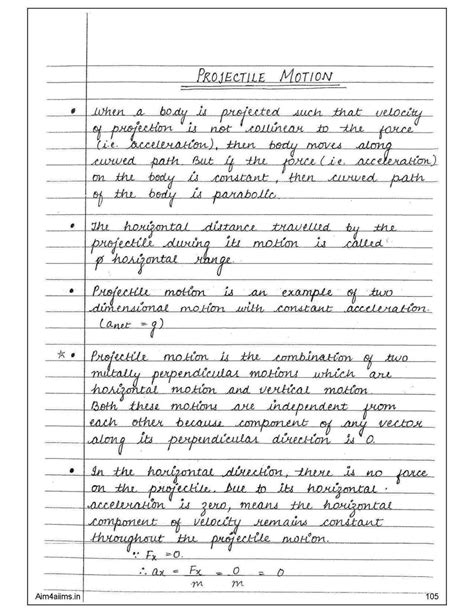 PROJECTILE MOTION
• When a body is projected such that velocity
of projection is not collinear to the force
(i.e. acceleration), then body moves along
curved path. But if the force (i.e. acceleration)
on the body is constant, then curved path
of the body is parabolic.
• The horizontal distance travelled by the
projectile during its motion is called
horizontal range.
• Projectile motion is an example of two
dimensional motion with constant acceleration.
(anet = g)
* • Projectile motion is the combination of two
mutally perpendicular motions which are
horizontal motion and vertical motion
Both these motions are independent from
each other because component of any vector
along its perpendicular direction is 0.
• In the horizontal direction, there is no force
on the projectile. Due to its horizontal
acceleration is zero, means the horizontal
component of velocity remains constant
throughout the projectile motion.
∵ Fx = 0.
∴ ax = Fx/m = 0/m = 0
Aim4aiims.in
105